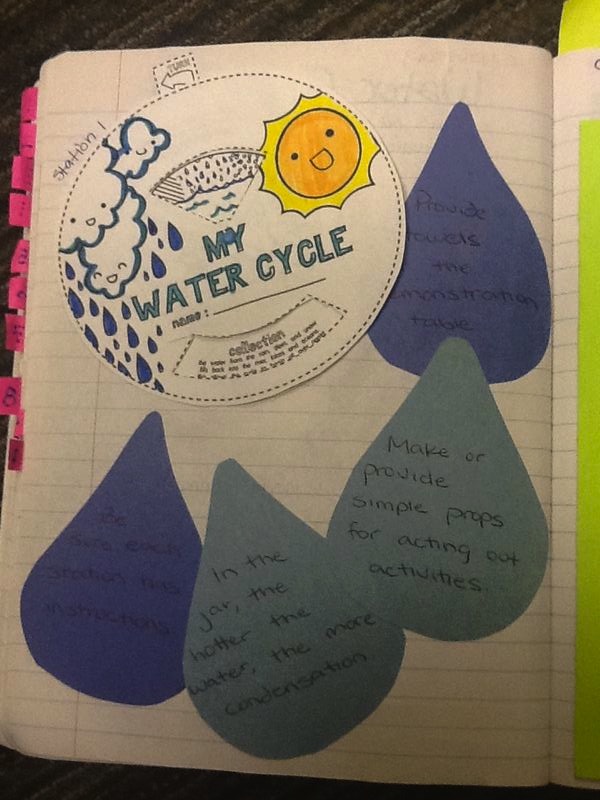 TURN
Station 1
MY
WATER CYCLE
name:
collection
Provide
towels
the
demonstration
table
Make or
provide
simple props
for acting out
activities.
Be
sure each
station has
instructions
In the
jar, the
hotter the
water, the more
condensation
8